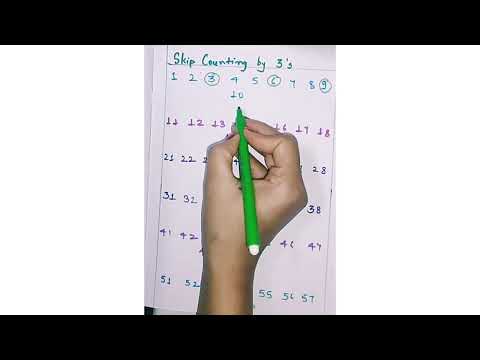 Skip Counting by 3's
1 2 3 4 5 6 7 8 9
10
11 12 13 16 17 18
21 22 28
31 32 38
41 42 46 47
51 52 55 56 57